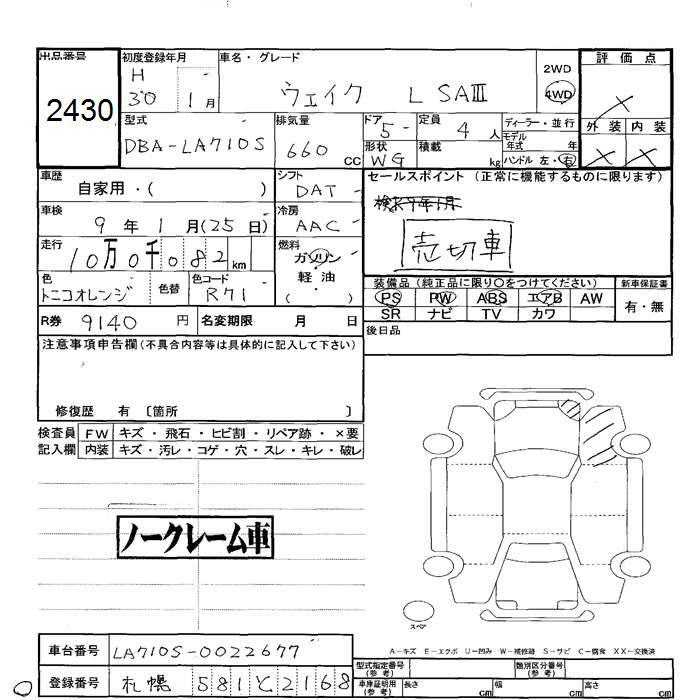 出品番号
2430
初度登録年月
H
30 1月
車名・グレード
ウェイク L SAⅢ
2WD
4WD
評価点
×
外装 内装
× ×
型式
DBA-LA710S
排気量
660 cc
ドア
5
定員
4 人
ディーラー・並行
モデル年式 年
形状
WG
積載
kg
ハンドル 左・右
車歴
自家用・( )
シフト
DAT
セールスポイント(正常に機能するものに限ります)
検R9年1月
売切車
車検
9年1月(25日)
冷房
AAC
走行
10万0千082km
燃料
ガソリン
軽・油
( )
色
トニコオレンジ
色替
色コード
R71
装備品(純正品に限り○をつけてください)
新車保証書
PS PW ABS エアB AW
SR ナビ TV カワ
有・無
R券 9140 円
名変期限 月 日
後日品
注意事項申告欄(不具合内容等は具体的に記入して下さい)
修復歴 有〔箇所 〕
検査員記入欄
FW キズ・飛石・ヒビ割・リペア跡・×要
内装 キズ・汚レ・コゲ・穴・スレ・キレ・破レ
ノークレーム車
スペア
A-キズ E-エクボ U-凹み W-補修跡 S-サビ C-腐食 XX-交換済
車台番号 LA710S-0022677
登録番号 札幌 581 と 2168
型式指定番号(参考)
類別区分番号(参考)
車庫証明用(参考) 長さ cm 幅 cm 高さ cm